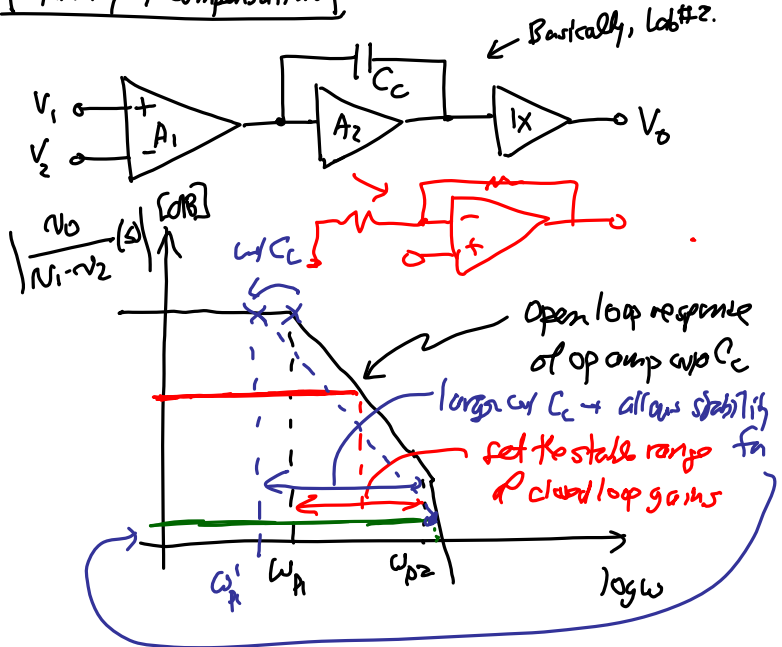 Compensation
Basically, Lab #2.
V1
+
-
A1
V2
Cc
A2
1X
Vo
-
+
|vo/(v1-v2) (s)| [dB]
w/ Cc
Open loop response
of op amp w/o Cc
larger w/ Cc → allows stability
for
set the stable range
of closed loop gains
ωp1'
ωp1
ωp2
log ω